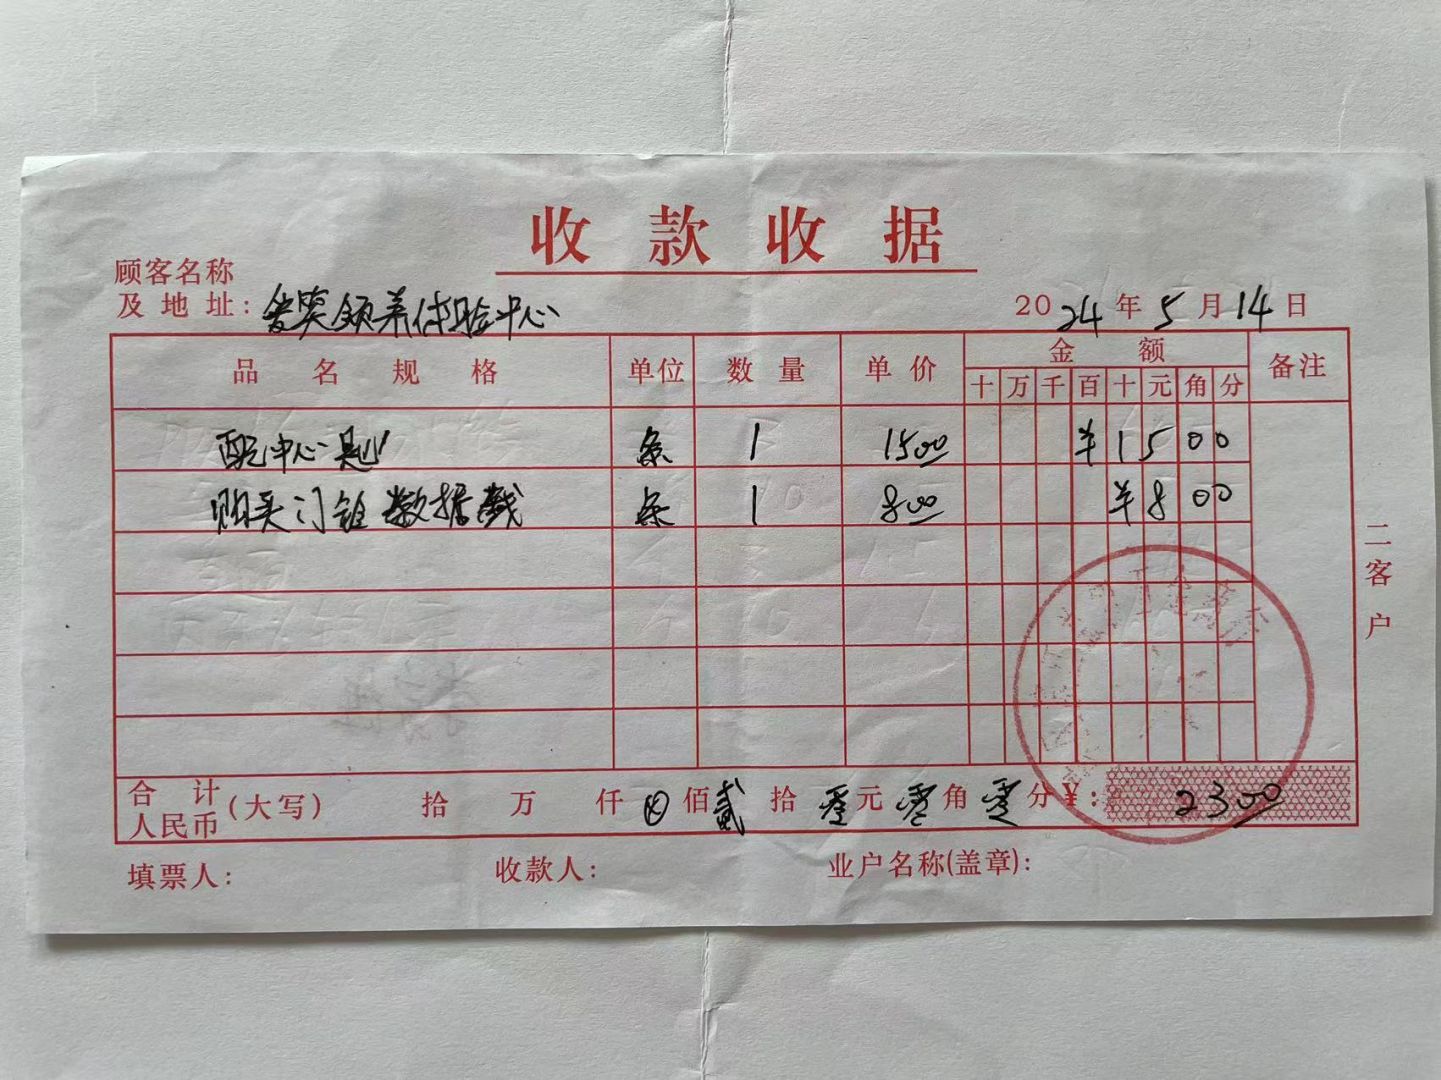 收款收据
顾客名称
及地址: 领养体验中心
2024年5月14日
品名规格 单位 数量 单价 金额 备注
十 万 千 百 十 元 角 分
配中心匙 条 1 1500 ¥1500
购买门锁数据 条 1 800 ¥800
二客户
合计
人民币
(大写) 拾 万 仟 ⊗ 佰 贰 拾 零 元 零 角 零 分 ¥: 2300
填票人: 收款人: 业户名称(盖章):